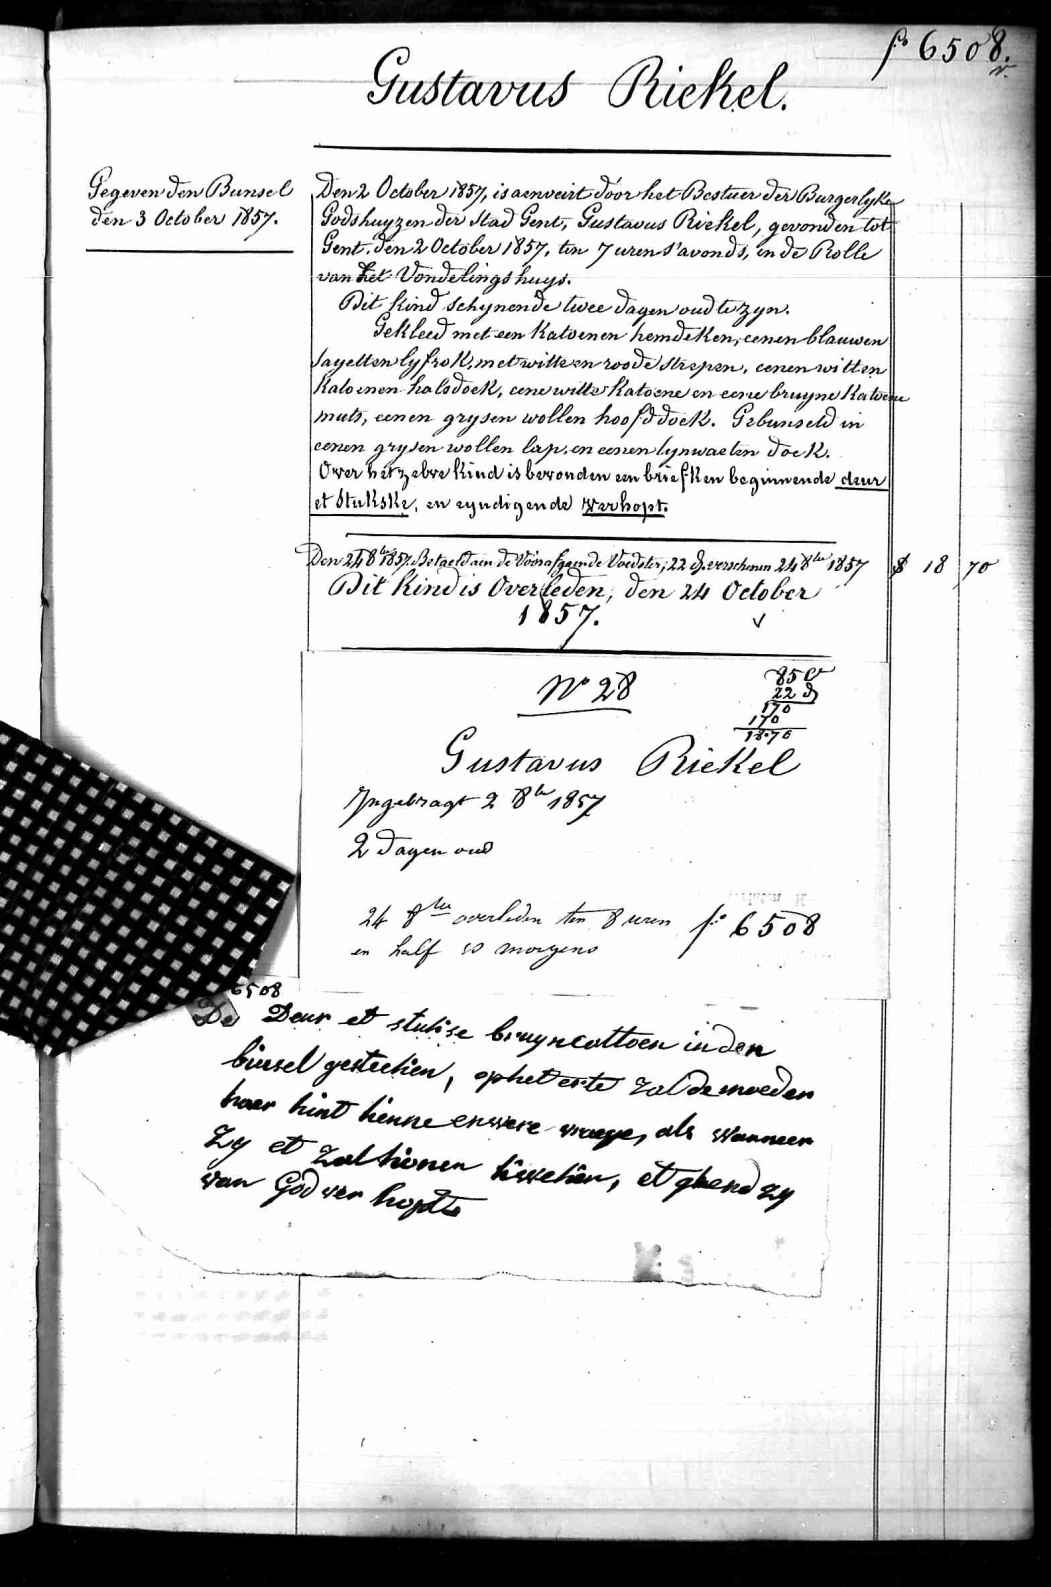 fo 6508.
v.
Gustavus Riekel.
Gegeven den Bunsel
den 3 October 1857.
Den 2 October 1857, is aenveirt door het Bestuer der Burgerlyke
Godshuyzen der stad Gent, Gustavus Riekel, gevonden tot
Gent, den 2 October 1857, ten 7 uren s'avonds, in de Rolle
van het Vondelingshuys.
Dit kind schynende twee dagen oud te zyn.
Gekleed met een katoenen hemdeken, eenen blauwen
sayetten lyfrok, met witte en roode strepen, eenen witten
katoenen halsdoek, eene witte katoene en eene bruyne katoene
muts, eenen grysen wollen hoofddoek. Gebunseld in
eenen grysen wollen lap, en eenen lynwaeten doek.
Over hetzelve kind is bevonden een briefken beginnende deur
et stukske, en eyndigende verhopt.
Den 24 8ber 1857. Betaeld aen de Voorafgaende Voedster, 22 d. verschenen 24 8ber 1857 $ 18 70
Dit kind is Overleden, den 24 October
1857.
No 28
85 C
22 d
170
170
18.70
Gustavus Riekel
Ingebragt 2 8ber 1857
2 dagen oud
24 8ber overleden ten 8 uren
en half 's morgens
fo 6508
6508
De Deur et stukse bruyn cattoen in den
bunsel gesteken, op het este zal de moeder
haer kint kenne en were vraege, als wanneer
zy et zal konen kweken, et gheend zy
van God ver hopte